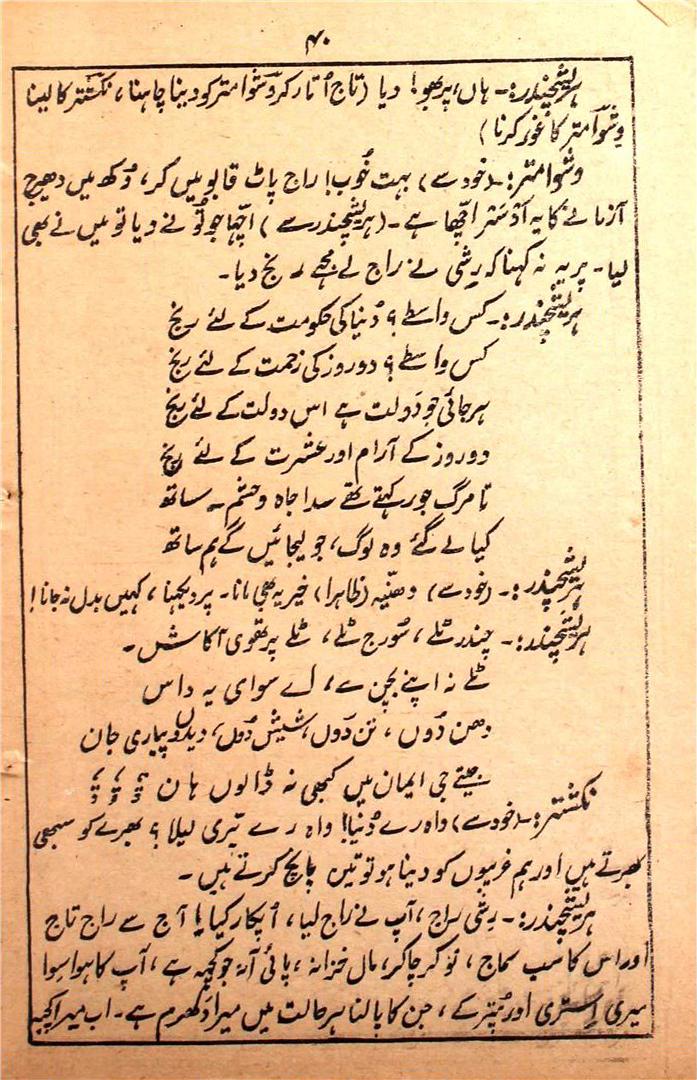 ۴۰
ہریشچندر:۔ ہاں، پربھو! دیا (تاج اُتار کر وشوامتر کو دینا چاہنا، نکشتر کا لینا
وشوامتر کا غور کرنا)
وشوامتر:۔ (خود سے) بہت خُوب! راج پاٹ قابو میں کر، دُکھ میں دھیرج
آزمانے کا یہ اَوسَر اچّھا ہے۔ (ہریشچندر سے) اچّھا جو تُو نے دیا تو میں نے بھی
لیا۔ پر یہ نہ کہنا کہ رِشی نے راج لے مجھے رنج دیا۔
ہریشچندر:۔ کس واسطے؟ دُنیا کی حکومت کے لئے رنج
کس واسطے؟ دو روز کی زحمت کے لئے رنج
ہرجائی جو دَولت ہے اس دولت کے لئے رنج
دو روز کے آرام اور عشرت کے لئے رنج
تا مرگ جو رکھتے تھے سدا جاہ و حشم ساتھ
کیا لے گئے وہ لوگ، جو لیجائیں گے ہم ساتھ
ہریشچندر:۔ (خود سے) دھنّیہ (ظاہرا) خیر یہ بھی مانا۔ پر دیکھنا، کہیں بدل نہ جانا!
ہریشچندر:۔ چندر ٹلے، سُورج ٹلے، ٹلے پرتھوی آکاش۔
ٹلے نہ اپنے بچن سے، اے سوامی یہ داس
دھن دُوں، تن دُوں، شیش دُوں، دیدوں پیاری جان
جیتے جی ایمان میں کبھی نہ ڈالوں ہان
نکشتر:۔ (خود سے) واہ رے دُنیا! واہ رے تیری لیلا؟ بھرے کو سبھی
بھرتے ہیں اور ہم غریبوں کو دینا ہو تو تین پانچ کرتے ہیں۔
ہریشچندر:۔ رِشی راج، آپ نے راج لیا، اُپکار کیا! آج سے راج تاج
اور اس کا سب سماج، نوکر چاکر، مال خزانہ، پائی آنہ جو کچھ ہے، آپ کا ہوا سِوا
میری اِستری اور پُتر کے، جن کا پالنا ہر حالت میں میرا دَھرم ہے۔ اب میرا کچھ